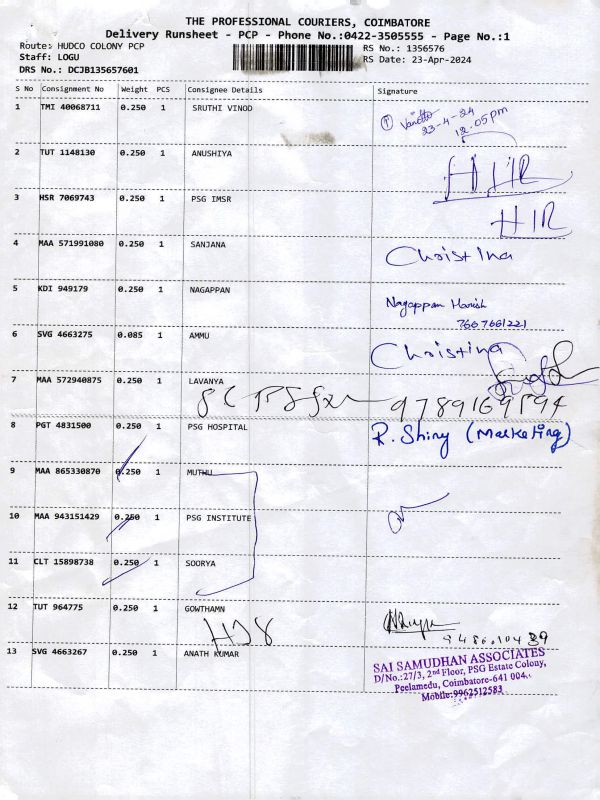 THE PROFESSIONAL COURIERS, COIMBATORE
Delivery Runsheet - PCP - Phone No.:0422-3505555 - Page No.:1
Route: HUDCO COLONY PCP
RS No.: 1356576
Staff: LOGU
RS Date: 23-Apr-2024
DRS No.: DCJB135657601
S No Consignment No Weight PCS Consignee Details Signature
1 TMI 40068711 0.250 1 SRUTHI VINOD
23-4-24
12.05pm
2 TUT 1148130 0.250 1 ANUSHIYA
3 HSR 7069743 0.250 1 PSG IMSR
4 MAA 571991080 0.250 1 SANJANA Christina
5 KDI 949179 0.250 1 NAGAPPAN Nagappan Harish
7667661221
6 SVG 4663275 0.085 1 AMMU Christina
7 MAA 572940875 0.250 1 LAVANYA
9789169594
8 PGT 4831500 0.250 1 PSG HOSPITAL R. Shiny (Marketing)
9 MAA 865330870 0.250 1 MUTHU
10 MAA 943151429 0.250 1 PSG INSTITUTE
11 CLT 15898738 0.250 1 SOORYA
12 TUT 964775 0.250 1 GOWTHAMN
13 SVG 4663267 0.250 1 ANATH KUMAR
SAI SAMUDHAN ASSOCIATES
D/No.:27/3, 2nd Floor, PSG Estate Colony,
Peelamedu, Coimbatore-641 004.
Mobile:9962512583